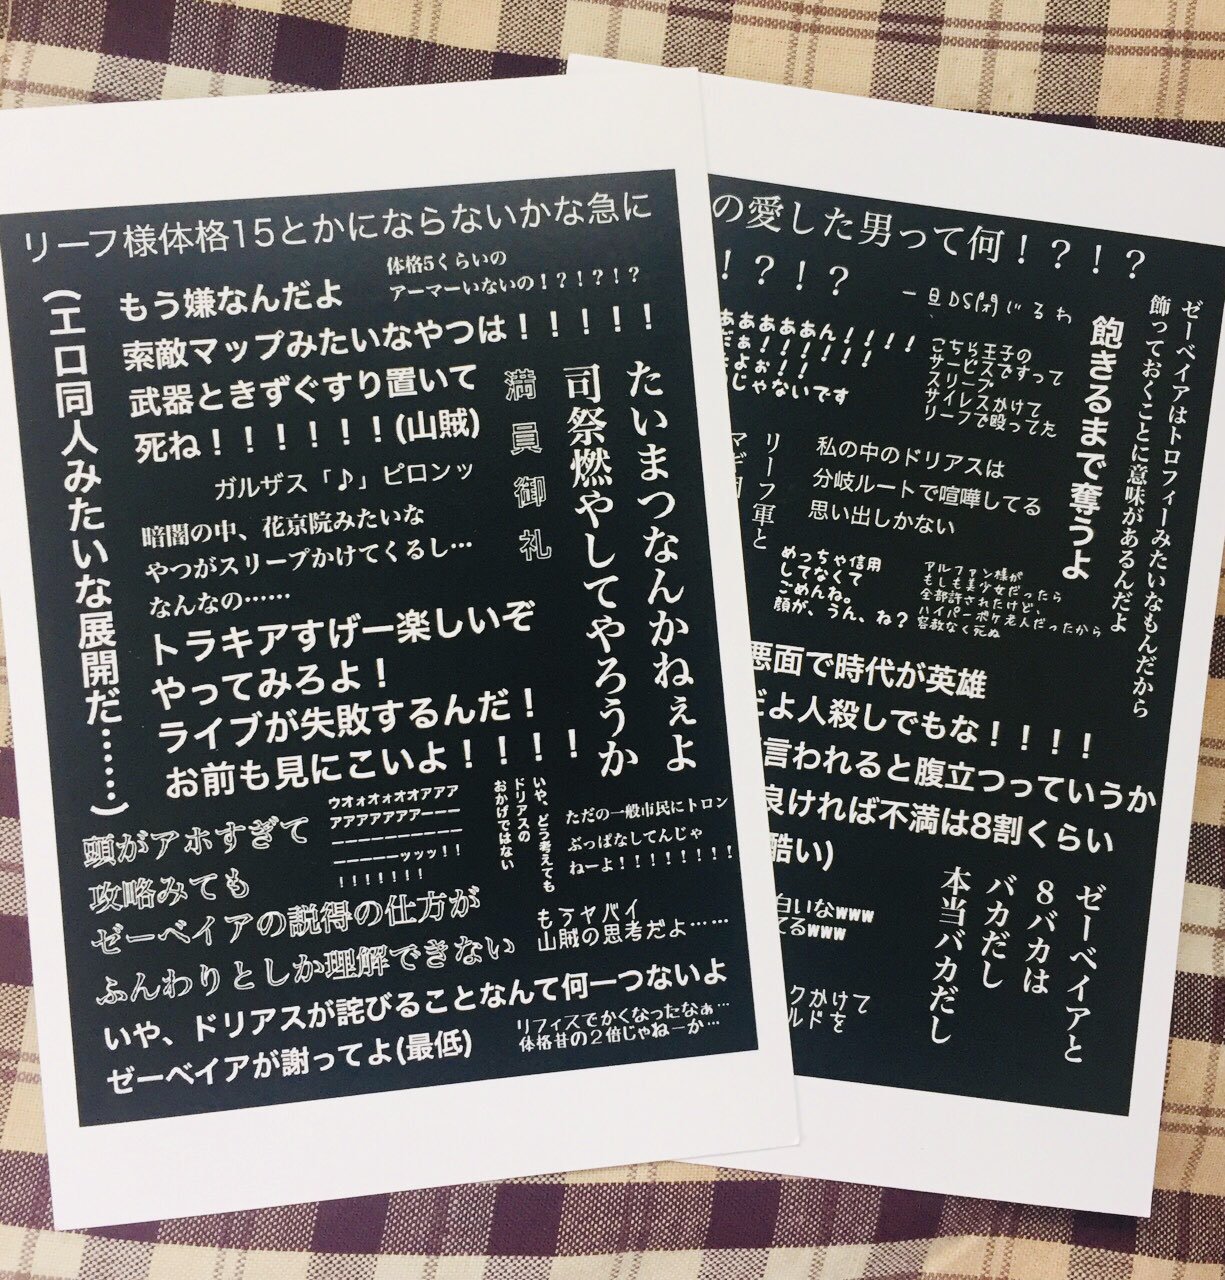 リーフ様体格15とかにならないかな急に
体格5くらいの
アーマーいないの！？！？！？
（エロ同人みたいな展開だ……）
もう嫌なんだよ
索敵マップみたいなやつは！！！！！
武器ときずぐすり置いて
死ね！！！！！！(山賊)
満員御礼
たいまつなんかねぇよ
司祭燃やしてやろうか
ガルザス「♪」ピロンッ
暗闇の中、花京院みたいな
やつがスリープかけてくるし…
なんなの……
トラキアすげー楽しいぞ
やってみろよ！
ライブが失敗するんだ！
お前も見にこいよ！！！！
ウオォオォオオアアア
アアアアアアアーーー
ーーーーーーーーーー
ーーーーーッッッ！！
！！！！！！！
いや、どう考えても
ドリアスの
おかげではない
ただの一般市民にトロン
ぶっぱなしてんじゃ
ねーよ！！！！！！！！
頭がアホすぎて
攻略みても
ゼーベイアの説得の仕方が
ふんわりとしか理解できない
もうヤバイ
山賊の思考だよ……
いや、ドリアスが詫びることなんて何一つないよ
ゼーベイアが謝ってよ(最低)
リフィスでかくなったなぁ…
体格昔の2倍じゃねーか…
の愛した男って何！？！？
！？！？
一旦DS閉じるわ
ゼーベイアはトロフィーみたいなもんだから
飾っておくことに意味があるんだよ
飽きるまで奪うよ
ぁあああああん！！！！
だぁ！！！！！！
よぉ！！
じゃないです
こちら王子の
サービスですって
スリープ
サイレスかけて
リーフで殴ってた
リーフ軍と
私の中のドリアスは
分岐ルートで喧嘩してる
思い出しかない
めっちゃ信用
してなくて
ごめんね。
顔が、うん、ね？
アルファン様が
もしも美少女だったら
全部許されたけど、
ハイパーボケ老人だったから
容赦なく死ぬ
悪面で時代が英雄
だよ人殺しでもな！！！！
言われると腹立つっていうか
良ければ不満は8割くらい
酷い)
白いなwww
てるwww
クかけて
ルドを
ゼーベイアと
8バカは
バカだし
本当バカだし